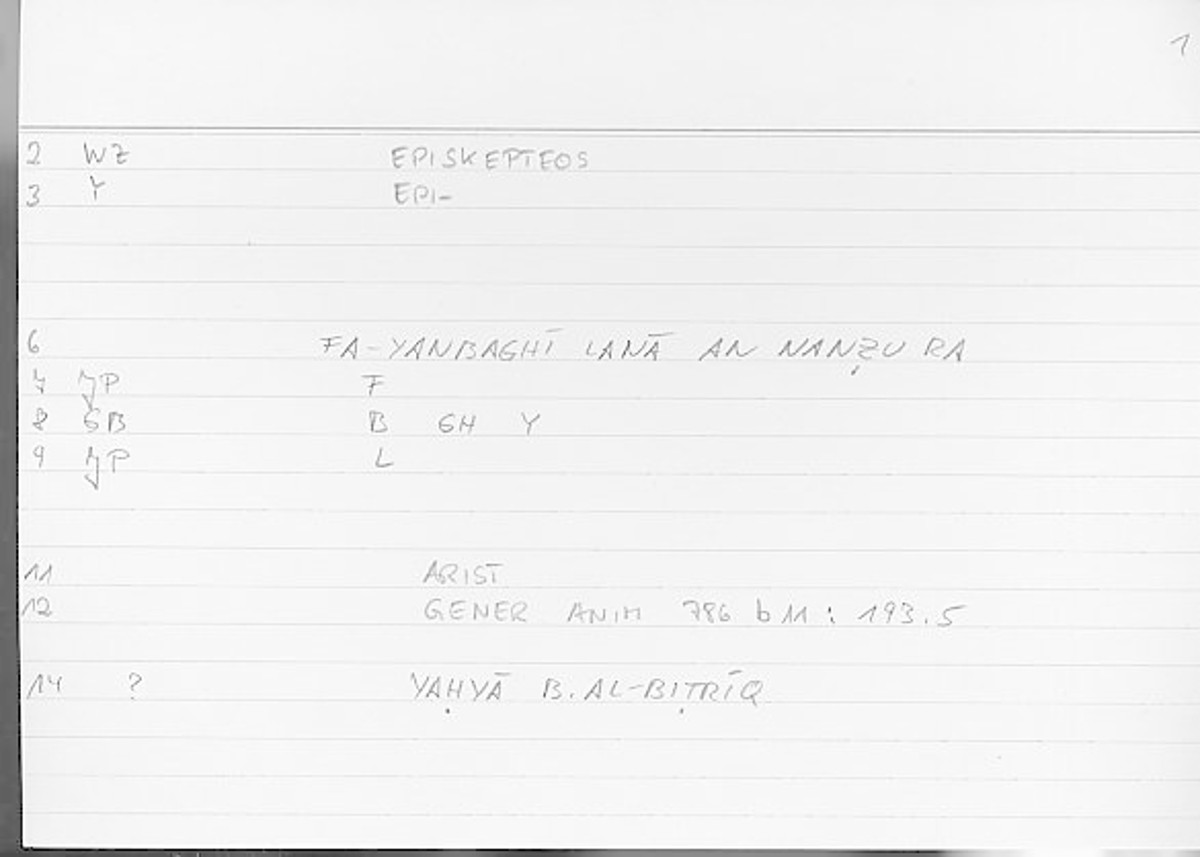 1
2 WZ EPISKEPTEOS
3 Y EPI-
6 FA-YANBAGHĪ LANĀ AN NANẒURA
7 JP F
8 GB B GH Y
9 JP L
11 ARIST
12 GENER ANIM 786 b 11 : 193.5
14 ? YAḤYĀ B. AL-BIṬRĪQ